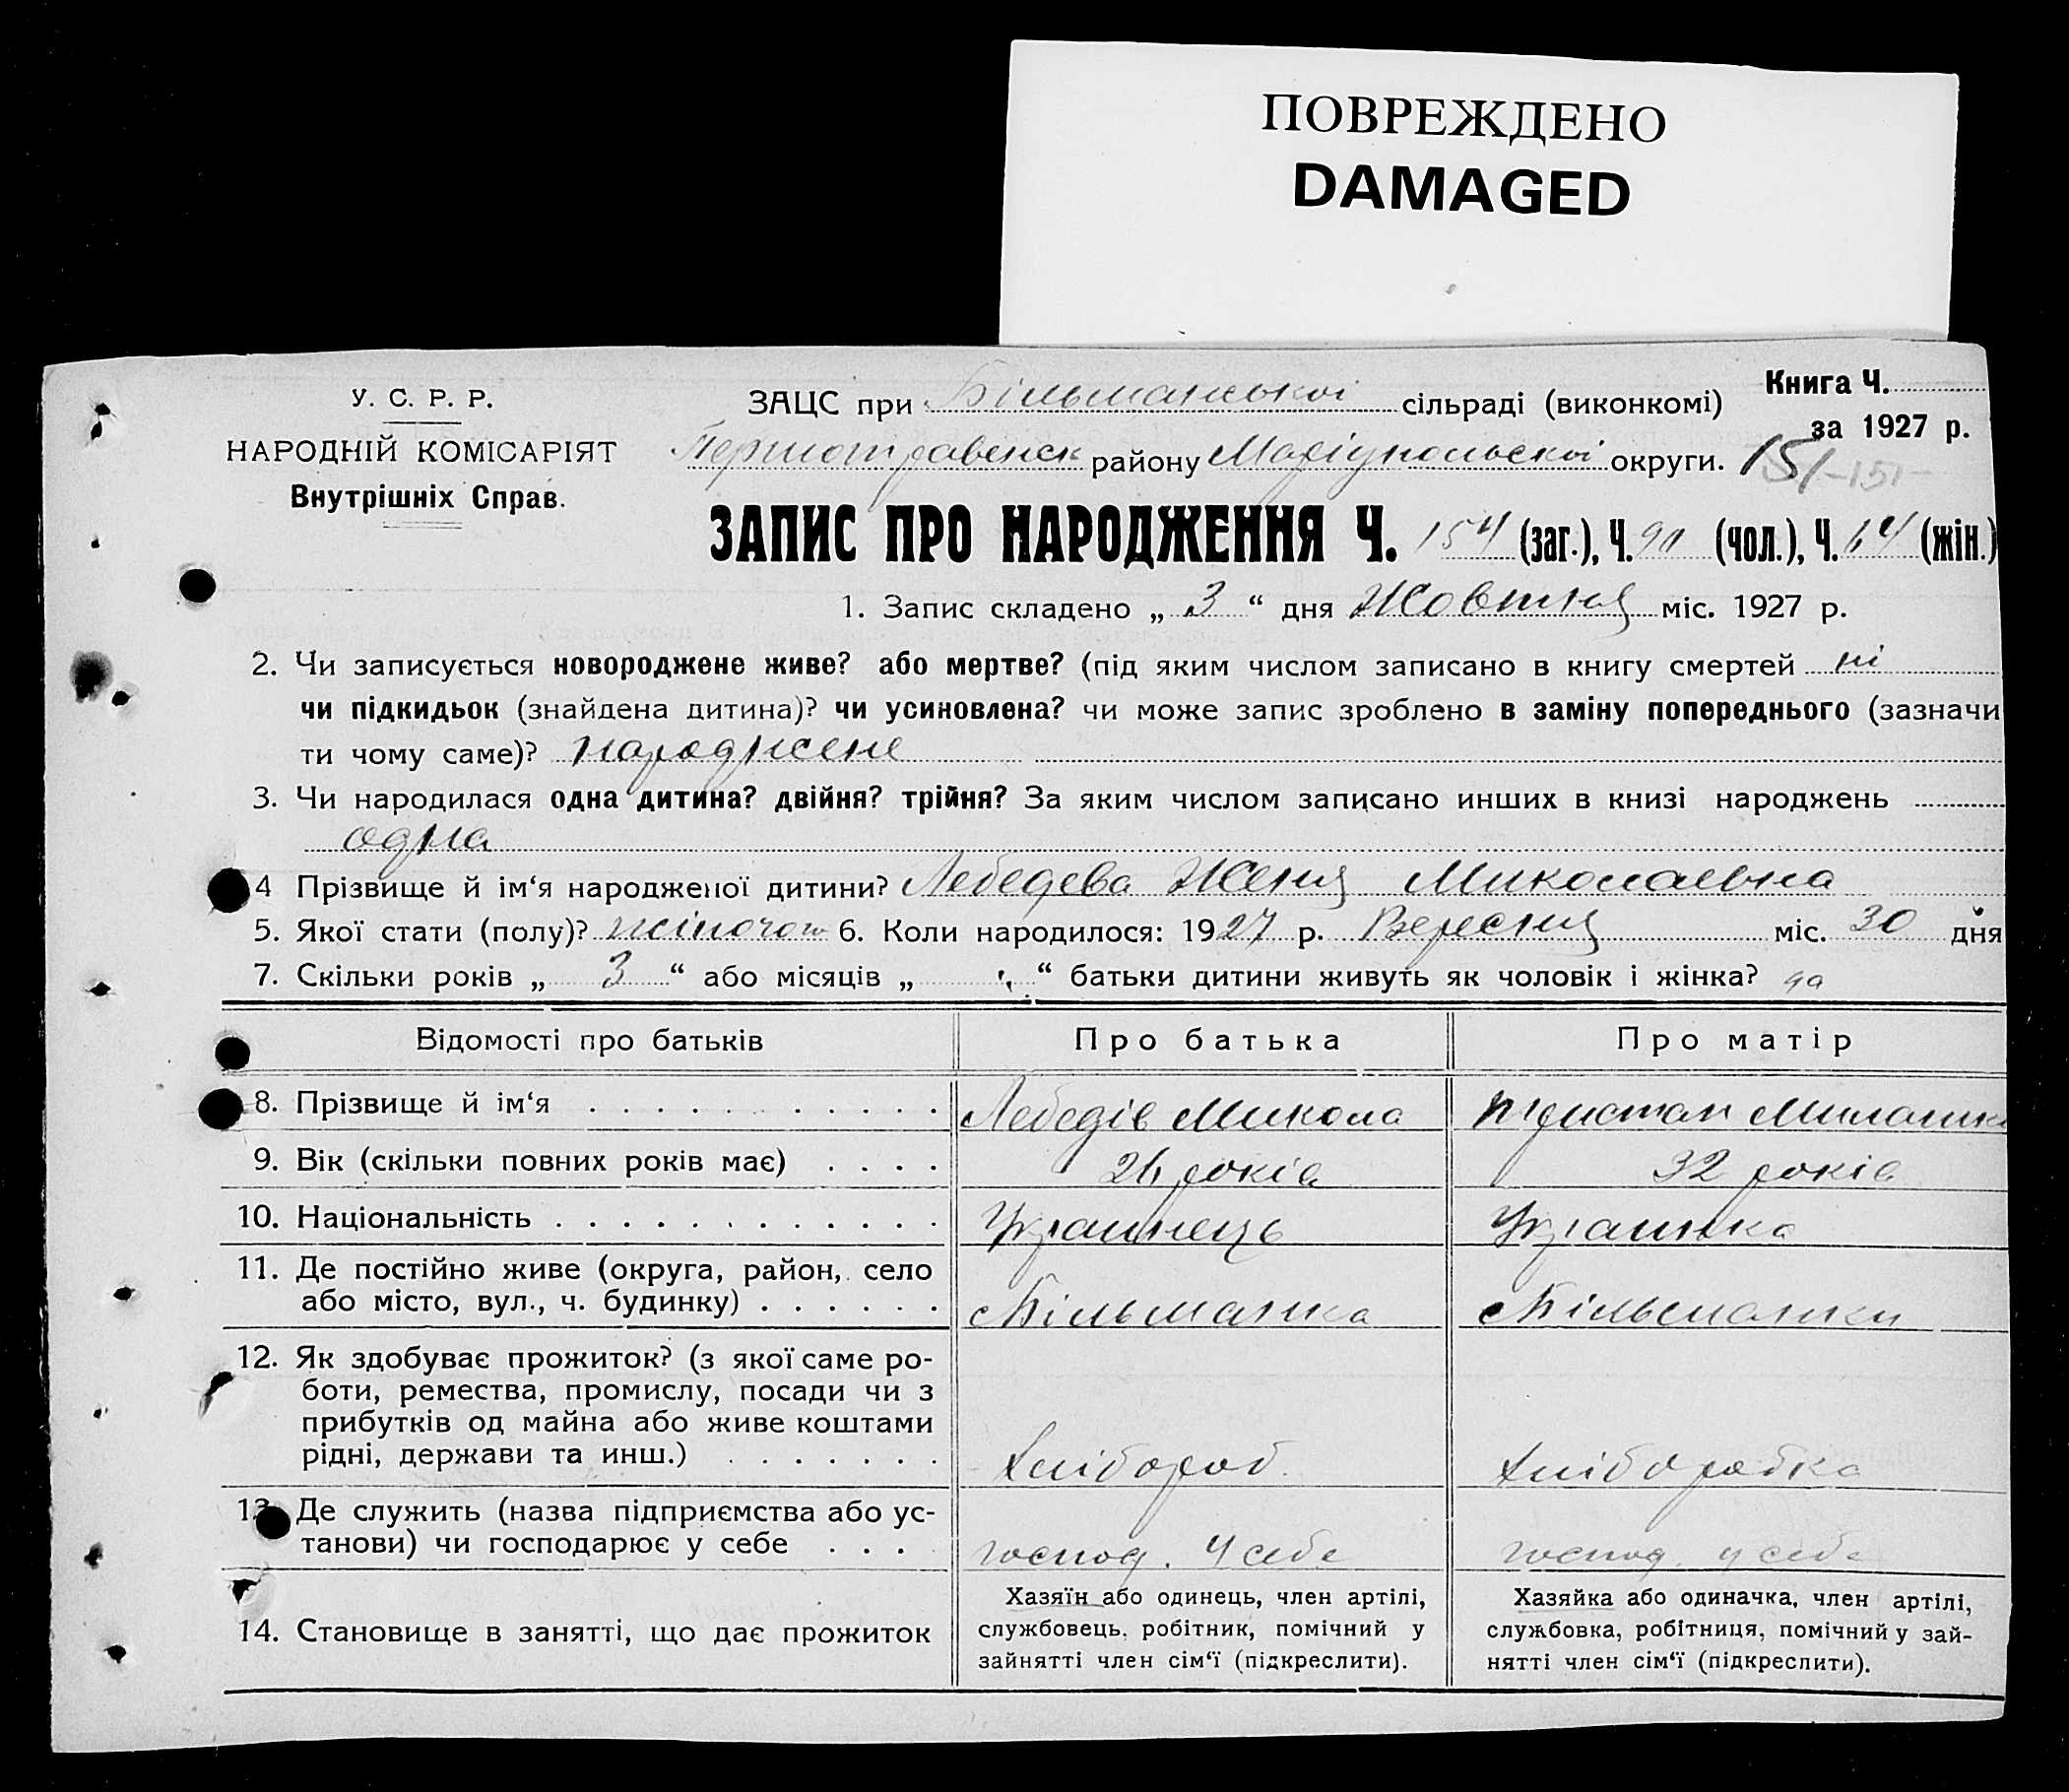 ПОВРЕЖДЕНО
DAMAGED
У. С. Р. Р.
НАРОДНІЙ КОМІСАРІЯТ
Внутрішніх Справ.
ЗАЦС при Більманської сільраді (виконкомі)
Книга Ч.
за 1927 р.
Першотравенск району Маріупольської округи. 151 -151-
ЗАПИС ПРО НАРОДЖЕННЯ Ч. 154 (заг.), Ч. 90 (чол.), Ч. 64 (жін.)
1. Запис складено „ 3 “ дня Жовтня міс. 1927 р.
2. Чи записується новороджене живе? або мертве? (під яким числом записано в книгу смертей ні
чи підкидьок (знайдена дитина)? чи усиновлена? чи може запис зроблено в заміну попереднього (зазначи
ти чому саме)? народжене
3. Чи народилася одна дитина? двійня? трійня? За яким числом записано инших в книзі народжень
одна
4 Прізвище й ім‘я народженої дитини? Лебедева Женя Миколаевна
5. Якої стати (полу)? жіночого 6. Коли народилося: 1927 р. Вересня міс. 30 дня
7. Скільки років „ 3 “ або місяців „ “ батьки дитини живуть як чоловік і жінка? да
Відомості про батьків
Про батька
Про матір
8. Прізвище й ім‘я
Лебедів Микола
9. Вік (скільки повних років має)
26 років
32 років
10. Національність
Українець
Українка
11. Де постійно живе (округа, район, село
або місто, вул., ч. будинку)
с Більманка
с Більманки
12. Як здобуває прожиток? (з якої саме ро-
боти, ремества, промислу, посади чи з
прибутків од майна або живе коштами
рідні, держави та инш.)
Хлібороб.
Хліборобка
13. Де служить (назва підприємства або ус-
танови) чи господарює у себе
господ. у себе
господ. у себе
14. Становище в занятті, що дає прожиток
Хазяїн або одинець, член артілі,
службовець, робітник, помічний у
зайнятті член сім‘ї (підкреслити).
Хазяйка або одиначка, член артілі,
службовка, робітниця, помічний у зай-
нятті член сім‘ї (підкреслити).